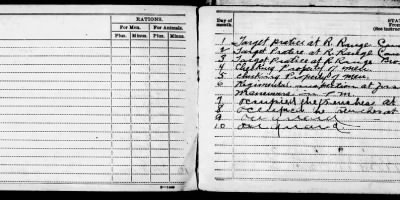 RATIONS.
For Men.
For Animals.
Plus.
Minus.
Plus.
Minus.
Day of month.
STA
From
(See instruc
1 Target pratice at R. Range Cam
2 Target Pratice at R Range Cam
3 Target Pratice at R Range
4 Checking Property of men
5 Checking Property of men.
6 Regimental inspection at
Maneuvers in P.M.
7 occupient the trenches at
8 the trenches at
9 guard
10 guard